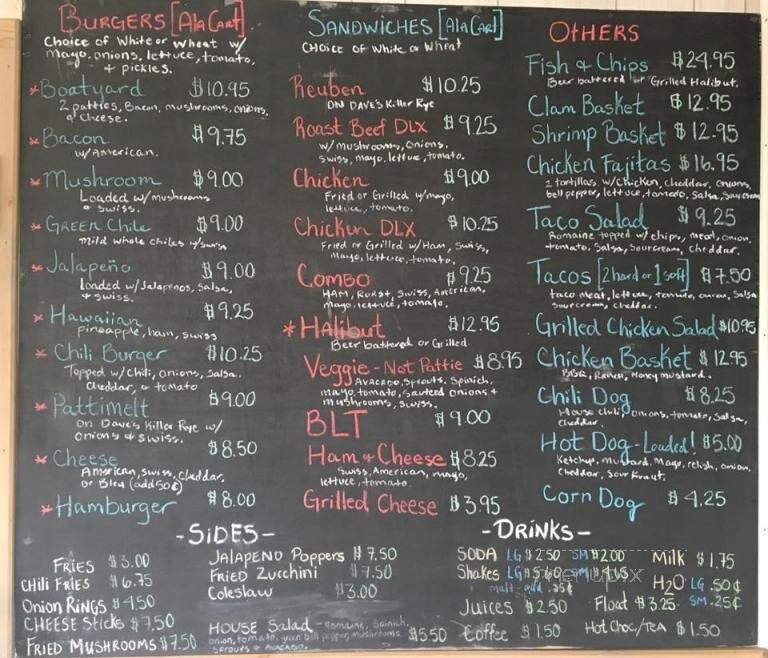 BURGERS [Ala Cart]
Choice of White or Wheat w/
mayo, onions, lettuce, tomato,
+ pickles.
*Boatyard $10.95
2 patties, Bacon, mushrooms, onions,
& cheese.
*Bacon $9.75
w/American.
*Mushroom $9.00
Loaded w/mushrooms
& swiss.
*GREEN Chile $9.00
mild whole chiles w/swiss
*Jalapeño $9.00
loaded w/Jalapenos, Salsa,
& swiss.
*Hawaiian $9.25
pineapple, ham, swiss
*Chili Burger $10.25
Topped w/chili, onions, salsa.
cheddar, & tomato
*Pattimelt $9.00
on Dave's Killer Rye w/
onions & swiss.
*Cheese $8.50
American, swiss, cheddar,
or Bleu (add 50¢)
*Hamburger $8.00
SANDWICHES [Ala Cart]
CHOICE of White or Wheat
Reuben $10.25
ON DAVE'S Killer Rye
Roast Beef DLX $9.25
w/mushrooms, onions.
swiss, mayo, lettuce, tomato.
Chicken $9.00
Fried or Grilled w/mayo,
lettuce, tomato.
Chicken DLX $10.25
Fried or Grilled w/Ham, Swiss,
mayo, lettuce, tomato.
Combo $9.25
HAM, Roast, Swiss, American,
mayo, lettuce, tomato.
*Halibut $12.95
Beer battered or Grilled.
Veggie - Not Pattie $8.95
Avacado, Sprouts, Spinich,
mayo, tomato, sauteed onions +
mushrooms, swiss.
BLT $9.00
Ham + Cheese $8.25
Swiss, American, mayo,
lettuce, tomato.
Grilled Cheese $3.95
OTHERS
Fish & Chips $24.95
Beer battered or Grilled Halibut.
Clam Basket $12.95
Shrimp Basket $12.95
Chicken Fajitas $16.95
2 tortillas, w/chicken, cheddar, onions,
bell pepper, lettuce, tomato, Salsa, Sour cream
Taco Salad $9.25
Romaine topped w/ chips, meat, onion,
tomato, Salsa, Sourcream, cheddar.
Tacos [2 hard or 1 soft] $7.50
taco meat, lettuce, tomato, onion, Salsa
Sourcream, cheddar.
Grilled Chicken Salad $10.95
Chicken Basket $12.95
BBQ, Ranch, Honey mustard.
Chili Dog $8.25
House chili, onions, tomato, Salsa,
cheddar.
Hot Dog - Loaded! $5.00
Ketchup, mustard, mayo, relish, onion,
cheddar, Sour Kraut.
Corn Dog $4.25
-SIDES-
FRIES $3.00
CHILI FRIES $6.75
Onion RINGS $4.50
CHEESE Sticks $7.50
FRIED MUSHROOMS $7.50
JALAPENO Poppers $7.50
FRIED Zucchini $7.50
Coleslaw $3.00
HOUSE Salad - Romaine, Spinich,
onion, tomato, green bell pepper, mushrooms $5.50
sprouts & avacado.
-DRINKS-
SODA LG $2.50 SM $2.00
Shakes LG $5.60 SM $4.65
malt add .35¢
Juices $2.50
Coffee $1.50
Milk $1.75
H2O LG .50¢
SM .25¢
Float $3.25
Hot Choc/TEA $1.50